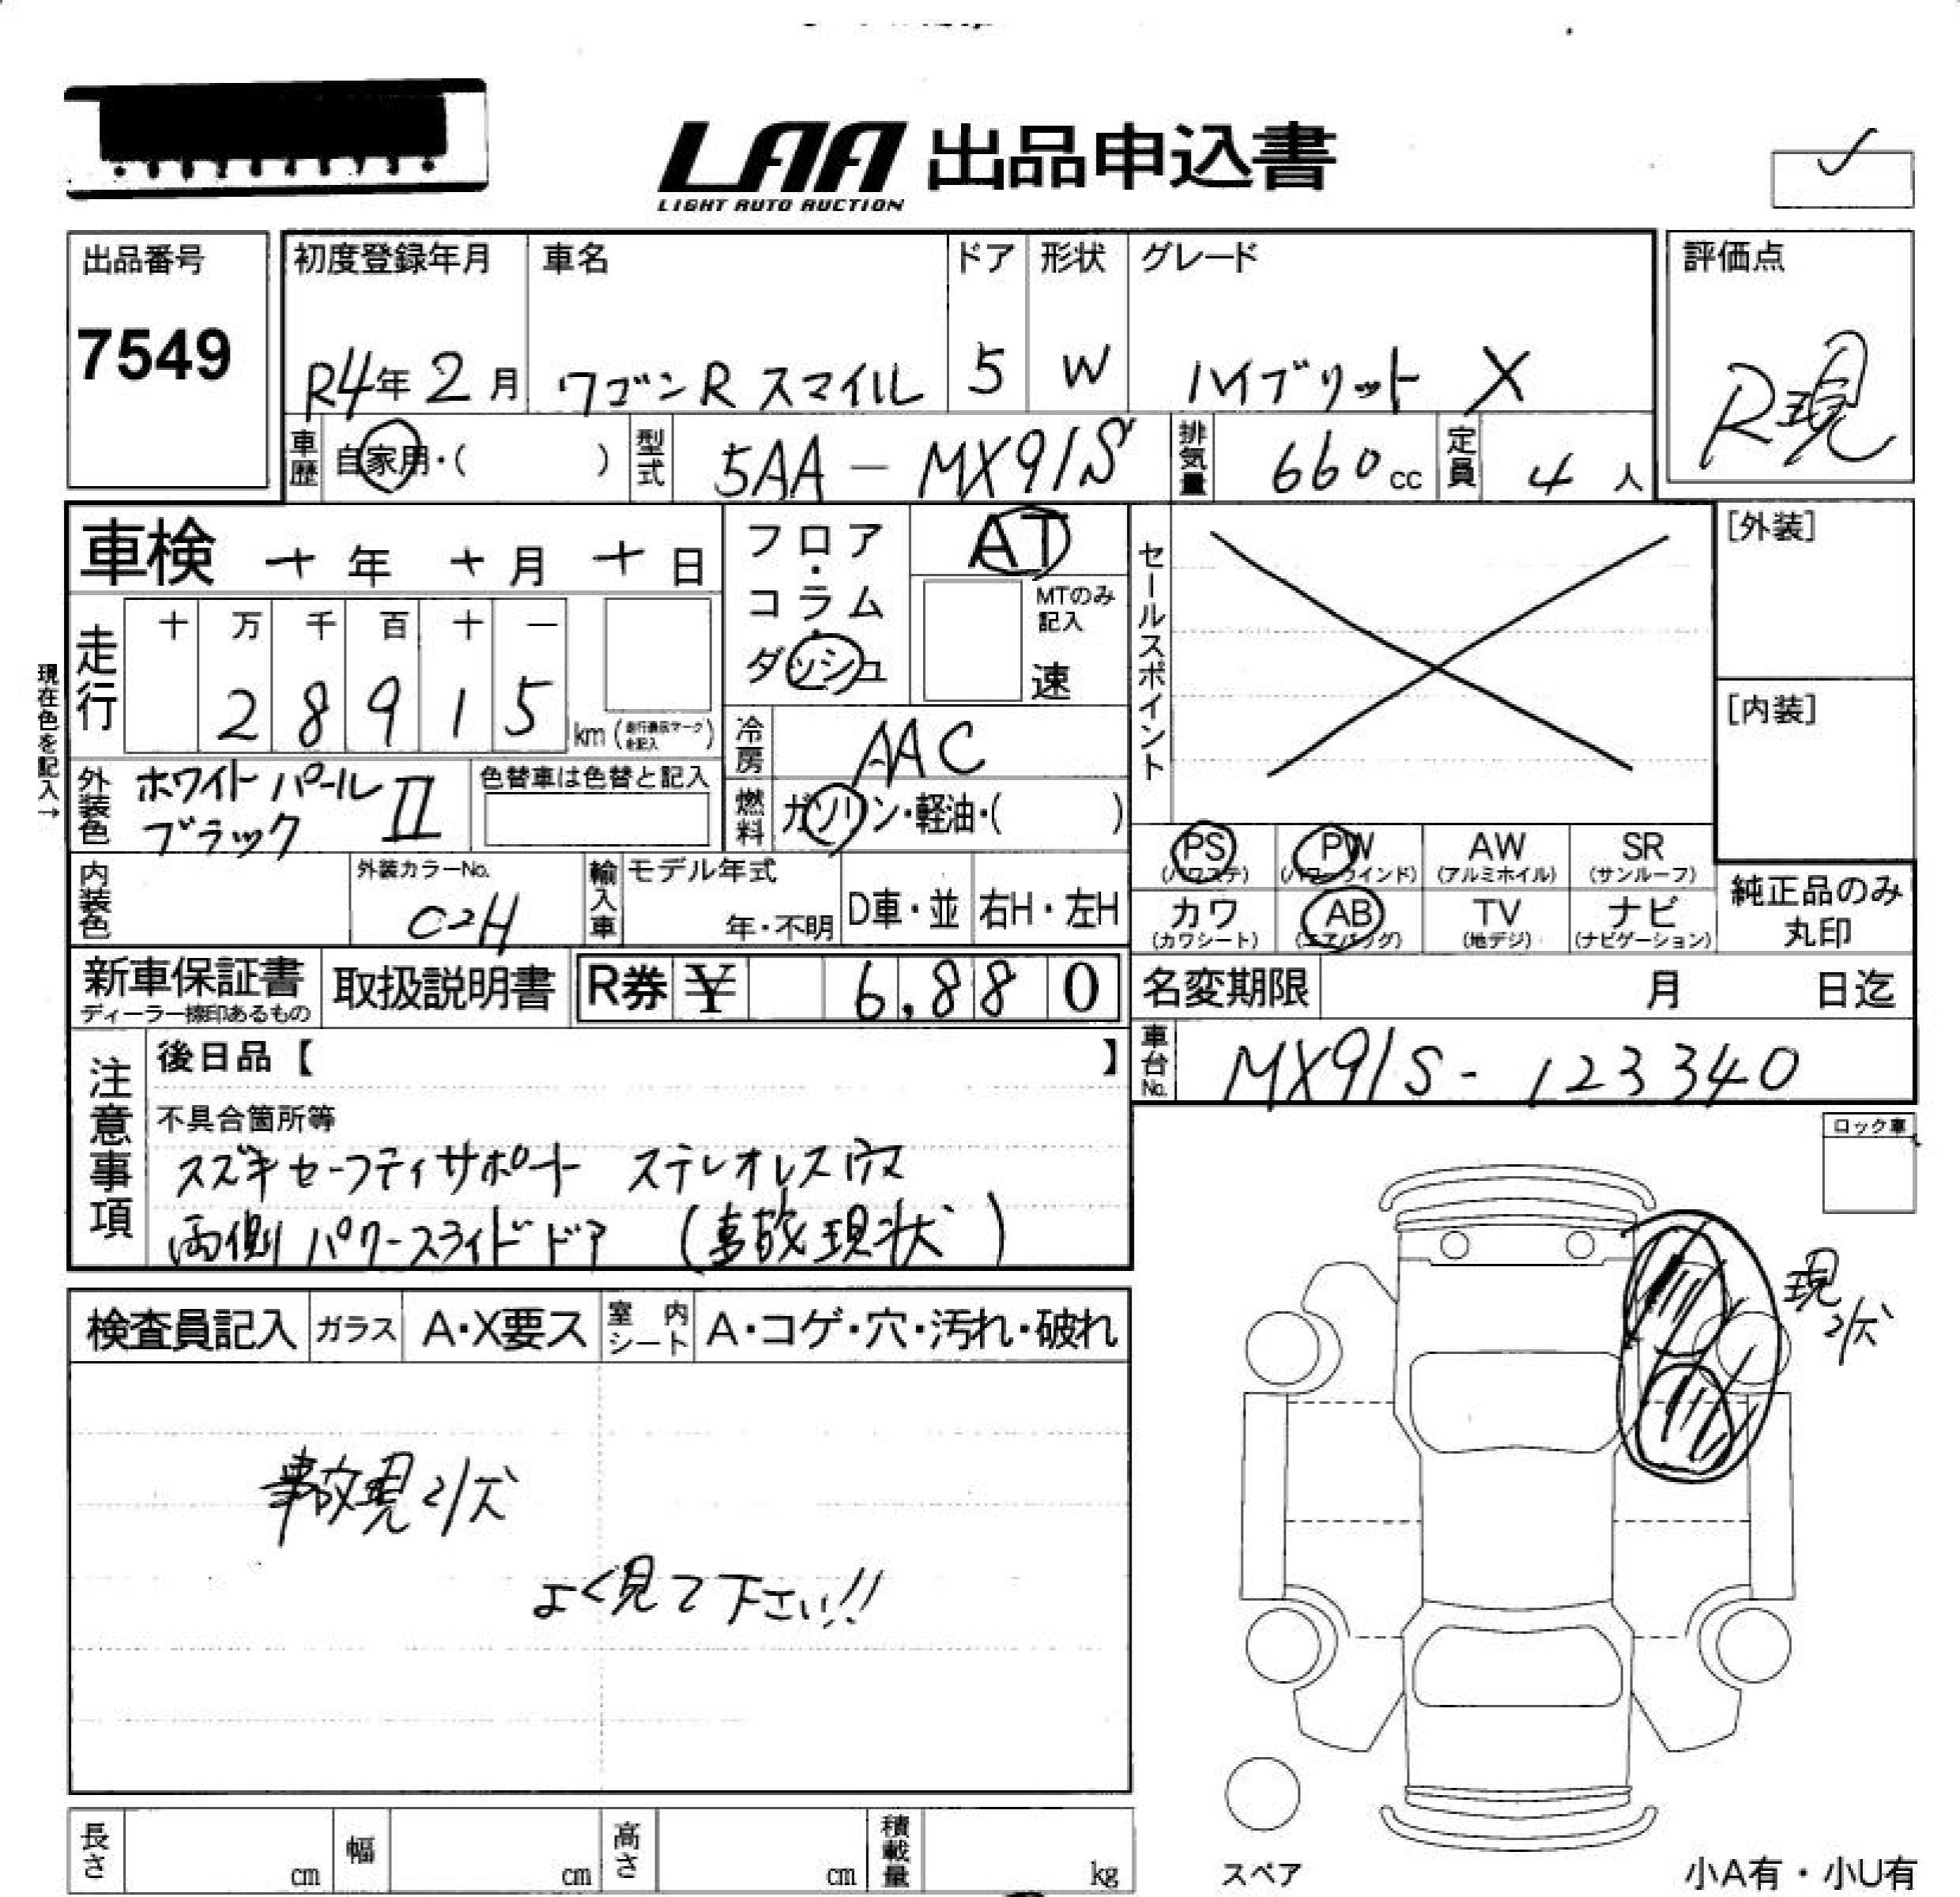 LAA 出品申込書
LIGHT AUTO AUCTION
出品番号
7549
初度登録年月
R4年 2月
車名
ワゴンR スマイル
ドア
5
形状
W
グレード
ハイブリット X
評価点
R現
車歴 自家用・( )
型式 5AA - MX91S
排気量 660cc
定員 4人
車検 十年 十月 十日
フロア・コラム・ダッシュ
AT
MTのみ記入
速
セールスポイント
[外装]
[内装]
現在色を記入→
走行
十 万 千 百 十 一
2 8 9 1 5 km (走行裏面マークを記入)
冷房 AAC
外装色 ホワイトパールII
ブラック
色替車は色替と記入
燃料 ガソリン・軽油・( )
PS (パワステ)
PW (パワーウインド)
AW (アルミホイル)
SR (サンルーフ)
カワ (カワシート)
AB (エアバッグ)
TV (地デジ)
ナビ (ナビゲーション)
純正品のみ
丸印
内装色
外装カラーNo.
C2H
輸入車
モデル年式
年・不明
D車・並
右H・左H
新車保証書
ディーラー捺印あるもの
取扱説明書
R券 ¥ 6,880
名変期限 月 日迄
車台No. MX91S-123340
注意事項
後日品【 】
不具合箇所等
スズキセーフティサポート ステレオレス穴
両側パワースライドドア (事故現状)
ロック車
現状
検査員記入
ガラス A・X要ス
室内シート A・コゲ・穴・汚れ・破れ
事故現状
よく見て下さい!!
長さ cm
幅 cm
高さ cm
積載量 kg
スペア
小A有・小U有